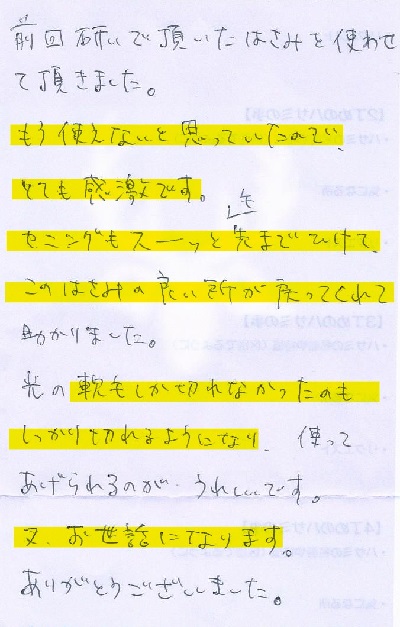 前回研いで頂いたはさみを使わせ
て頂きました。
もう使えないと思っていたので、
とても感激です。
毛
セニングもスーーッと先までひけて、
このはさみの良い所が戻ってくれて
助かりました。
先の軟毛しか切れなかったのも
しっかり切れるようになり、使って
あげられるのが、うれしいです。
又、お世話になります。
ありがとうございました。